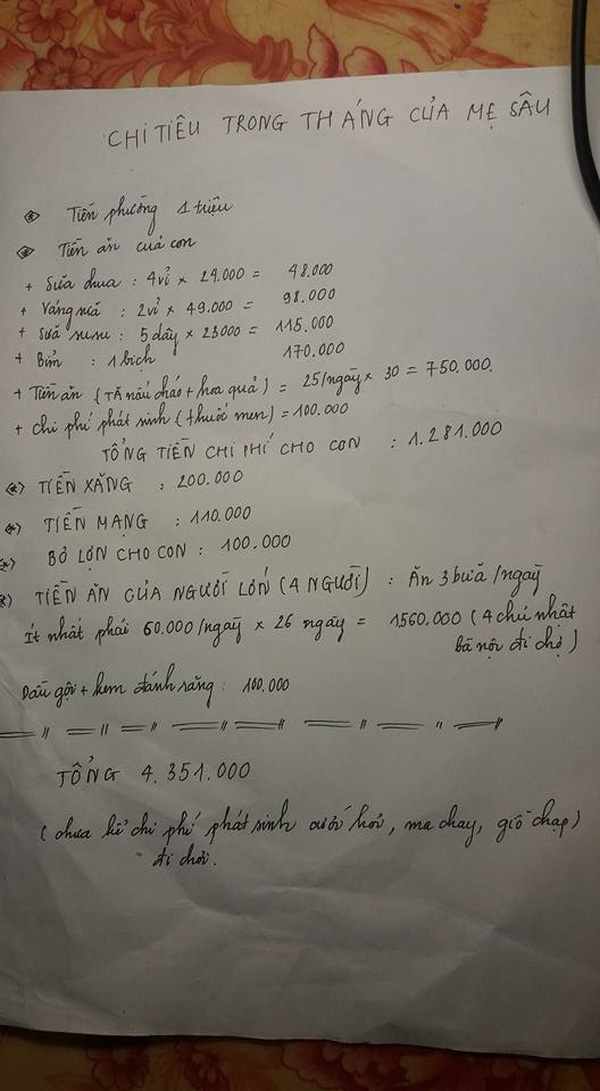 CHI TIÊU TRONG THÁNG CỦA MẸ SÂU
Tiền phường 1 triệu
Tiền ăn cuả con
+ Sữa chua : 4vỉ × 24.000 = 48.000
+ Váng sữa : 2vỉ × 49.000 = 98.000
+ Sữa susu : 5 dây × 23000 = 115.000
+ Bỉm : 1 bịch 170.000
+ Tiền ăn (TĂ nấu cháo + hoa quả) = 25/ngày × 30 = 750.000.
+ chi phí phát sinh (thuốc men) = 100.000
TỔNG TIỀN CHI PHÍ CHO CON : 1.281.000
(*) TIỀN XĂNG : 200.000
(*) TIỀN MẠNG : 110.000
*) BỎ LỢN CHO CON : 100.000
*) TIỀN ĂN CỦA NGƯỜI LỚN (4 NGƯỜI) : ĂN 3 buã /ngaỹ
Ít nhất phải 60.000/ngaỹ × 26 ngaỹ = 1560.000 (4 chủ nhật
bà nội đi chợ)
Dầu gội + kem đánh răng : 100.000
TỔNG 4.351.000
(chưa kể chi phí phát sinh cưới hỏi, ma chay, giỗ chạp)
đi chơi.